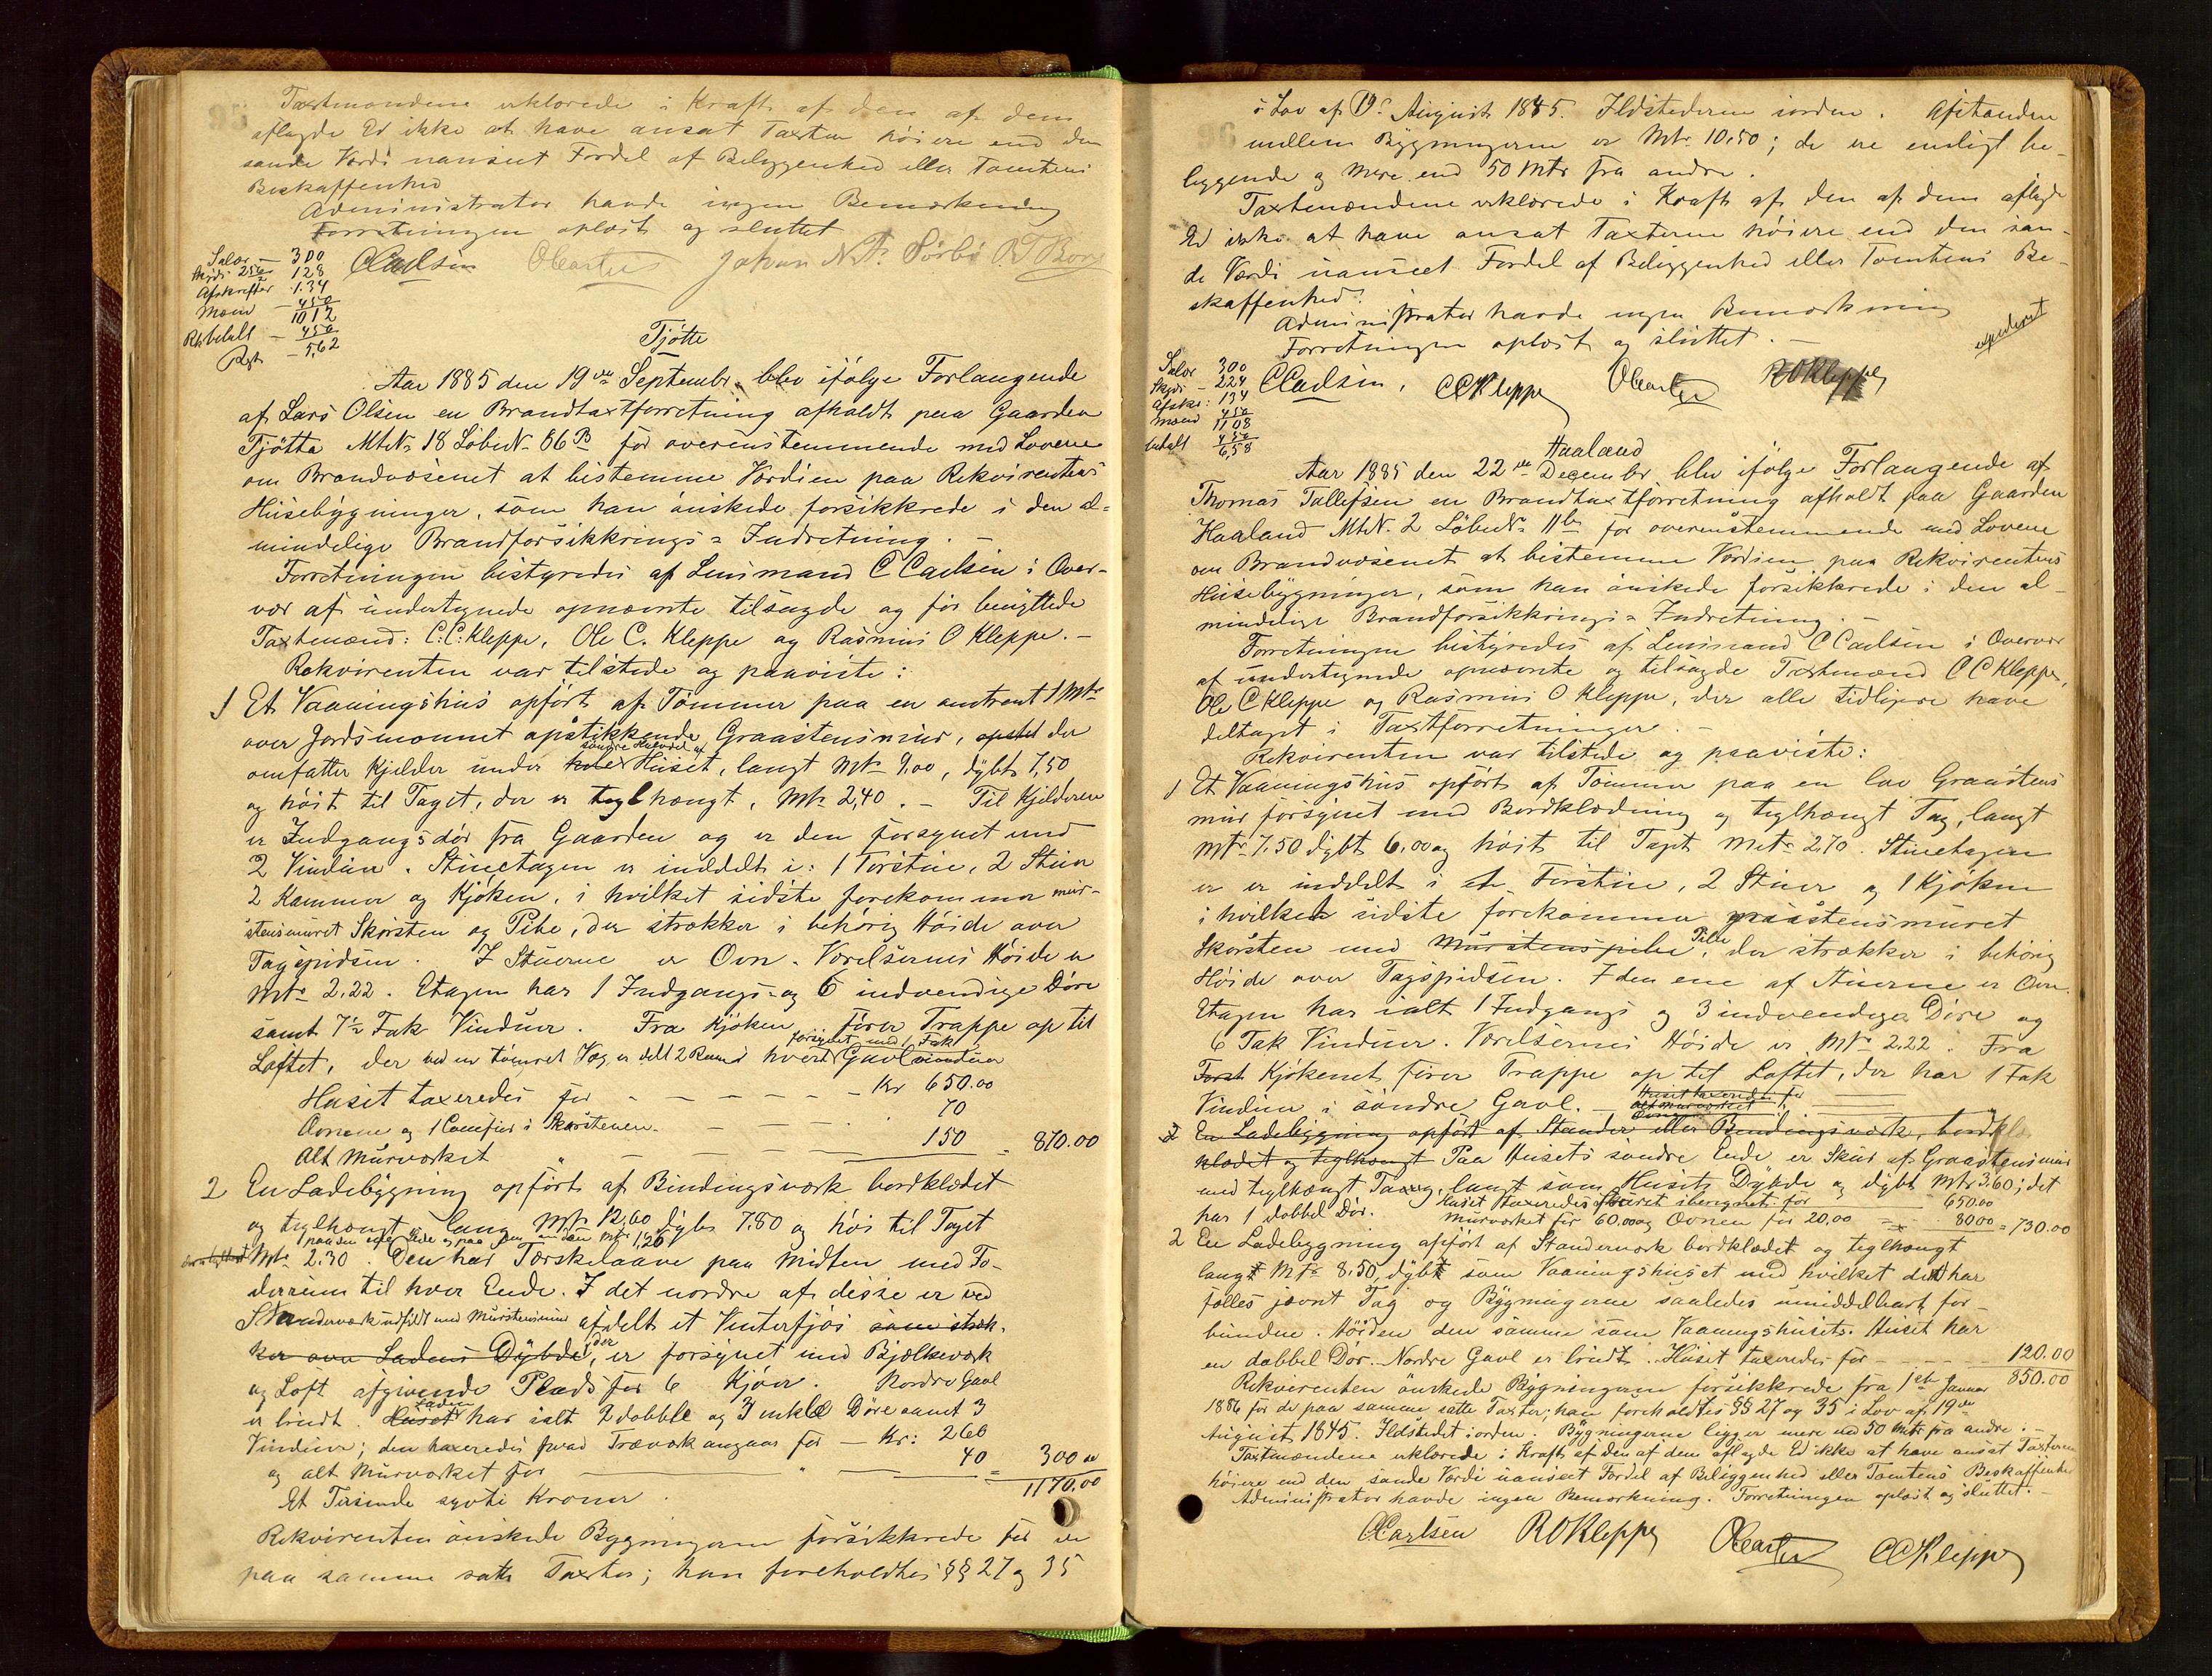 Taxtmændene erklærede i Kraft af den af dem
aflagde Ed ikke at have ansat Taxten høiere end den
sande Værdi uanseet Fordel af Beliggenhed eller Tomtens
Beskaffenhed
Administrator havde ingen Bemærkning
Forretningen oplæst og sluttet
CCarlsen OCarlsen Johan N. F. Sørbø O T Bore
Salær — 300
Skyds 256/2 128
Afskrifter 1.34
Mænd — 450
1012
Rkbetalt — 450
Rest — 5,62
Tjøtte
Aar 1885 den 19de Septembr. blev ifølge Forlangende
af Lars Olsen en Brandtaxtforretning afholdt paa Gaarden
Tjøtta MtrN. 18 LøbeN. 86B for overenstemmende med Lovene
om Brandvæsenet at bestemme Værdien paa Rekvirentens
Husebygninger, som han ønskede forsikkrede i den al-
mindelige Brandforsikkrings-Indretning. —
Forretningen bestyredes af Lensmand C Carlsen i Over-
vær af undertegnede opnævnte tilsagde og før benyttede
Taxtmænd: C. C. Kleppe, Ole C. Kleppe og Rasmus O Kleppe. —
Rekvirenten var tilstede og paaviste:
1 Et Vaaningshus opført af Tømmer paa en omtrent 1 Mtr
over Jordsmonnet opstikkende Graastensmur, opstik der
omfatter Kjelder under hele søndre Halvdel af Huset, langt Mtr 9,00, dybt 7,50
og høit til Taget, der er teglhængt, Mtr 2,40. — Til Kjelderen
er Indgangsdør fra Gaarden og er den forsynet med
2 Vinduer. Stuetagen er inddelt i: 1 Forstue, 2 Stuer
2 Kammer og Kjøken, i hvilket sidste forekommer mur-
stensmuret Skorsten og Pibe, der strækker i behørig Høide over
Tagspidsen. I Stuerne er Ovn. Værelsernes Høide er
Mtr 2.22. Etagen har 1 Indgangs- og 6 indvendige Døre
samt 7½ Fak Vinduer. Fra Kjøken fører Trappe op til
Loftet, der ved en tømret Væg er delt 2 Rum hvert forsynet med 1 Fak Gavlvinduer
Huset taxeredes for — — — — — Kr 650.00
Ovnene og 1 Comfur i Skorstenen — — — 70
Alt Murværket " — — — — 150 = 870.00
2 En Ladebygning opført af Bindingsværk bordklædet
og teglhængt lang Mtr 12,60 dybt 7.80 og høi til Taget
Mtr 2.30 paa den ene Side og paa den anden Mtr 1,26. Den har Tærskelaave paa Midten med Fo-
derrum til hver Ende. I det nordre af disse er ved
Standerværk udfyldt med Murstensmur afdelt et Vinterfjøs som stræk-
ker over Ladens Dybde, der er forsynet med Bjelkeværk
og Loft afgivende Plads for 6 Kjøer. Nordre Gavl
er blindt. Huset Laden har ialt 2 dobble og 3 enkle Døre samt 3
Vinduer; den taxeredes hvad Træværk angaar for — Kr: 260
og alt Murværket for — " — 40 = 300 "
Et Tusinde sytti Kroner. 1170.00
Rekvirenten ønskede Bygningerne forsikkrede for de
paa samme satte Taxter; han foreholdtes §§ 27 og 35
i Lov af 19de August 1845. Ildstederne iorden. Afstanden
mellem Bygningerne er Mtr. 10.50; de ere ensligt be-
liggende og mere end 50 Mtr fra andre.
Taxtmændene erklærede i Kraft af den af dem aflagte
Ed ikke at have ansat Taxterne høiere end den san-
de Værdi uanseet Fordel af Beliggenhed eller Tomtens Be-
skaffenhed.
Administrator havde ingen Bemærkning
Forretningen oplæst og sluttet. —
expederet
CCarlsen, CCKleppe OCarlsen ROKleppe
Salær 300
Skyds — 224
Afskr: 134
Mænd 450
1108
betalt 450
6,58
Haaland
Aar 1885 den 22de Decembr blev ifølge Forlangende af
Thomas Tallefsen en Brandtaxtforretning afholdt paa Gaarden
Haaland MtrN. 2 LøbeN. 11b for overenstemmende med Lovene
om Brandvæsenet at bestemme Værdien paa Rekvirentens
Husebygninger, som han ønskede forsikkrede i den al-
mindelige Brandforsikkrings-Indretning. —
Forretningen bestyredes af Lensmand C Carlsen i Overvær
af undertegnede opnævnte og tilsagde Taxtmænd C C Kleppe,
Ole C Kleppe og Rasmus O Kleppe, der alle tidligere have
deltaget i Taxtforretninger. —
Rekvirenten var tilstede og paaviste:
1 Et Vaaningshus opført af Tømmer paa en lav Graastens
mur forsynet med Bordklædning og teglhængt Tag, langt
Mtr 7.50 dybt 6.00 og høit til Taget Mtr 2.70. Stuetagen
er er inddelt i Forstue, 2 Stuer og 1 Kjøken
i hvilket sidste forekommer graastensmuret
Skorsten med Murstenspibe Pibe, der strækker i behørig
Høide over Tagspidsen. I den ene af Stuerne er Ovn.
Etagen har ialt 1 Indgangs og 3 indvendige Døre og
6 Fak Vinduer. Værelsernes Høide er Mtr 2.22. Fra
Forst Kjøkenet fører Trappe op til Loftet, der har 1 Fak
Vindue i søndre Gavl. — Huset taxeredes for
Alt Murværket
2 En Ladebygning opført af Stander eller Bindingsværk, bordkl
klædet og teglhængt Paa Husets søndre Ende er Skur af Graastensmur
med teglhængt Tag, langt som Husets Dybde og dybt Mtr 3.60; det
har 1 dobbel Dør. Huset taxeredes Skuret iberegnet for 650.00
Murværket for 60.00 og Ovnen for 20.00 = 80.00 = 730.00
2 En Ladebygning opført af Standerværk bordklædet og teglhængt
langt Mtr 8.50, dybt som Vaaningshuset med hvilket det har
fælles jævnt Tag og Bygningerne saaledes umiddelbart for-
bundne. Høiden den samme som Vaaningshusets. Huset har
en dobbel Dør. Nordre Gavl er blindt. Huset taxeredes for — — 120.00
850.00
Rekvirenten ønskede Bygningerne forsikkrede fra 1ste Januar
1886 for de paa samme satte Taxter; han foreholdtes §§ 27 og 35 i Lov af 19de
August 1845. Ildstedet iorden. Bygningerne ligger mere end 50 Mtr fra andre. —
Taxtmændene erklærede i Kraft af den af dem aflagde Ed ikke at have ansat Taxterne
høiere end den sande Værdi uanseet Fordel af Beliggenhed eller Tomtens Beskaffenhed
Administrator havde ingen Bemærkning. Forretningen oplæst og sluttet. —
CCarlsen ROKleppe OCarlsen CCKleppe